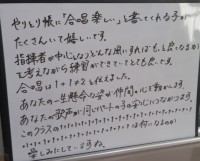 やりとり帳に「合唱楽しい」と書てくれる子が
たくさんいて嬉しいです。
指揮者が中心となってどんな風にすればもっと良くなるか
考えながら練習ができていてとても良いです。
合唱は1+1≠2と伝えました。
あなたの一生懸命な姿が仲間の心を動かします。
あなたの歌声が同じパートの子の安心につながります。
このクラスの1+1+1+1+1+1+1+1+1+1+1+1
は何になるのか
楽しみにしています。